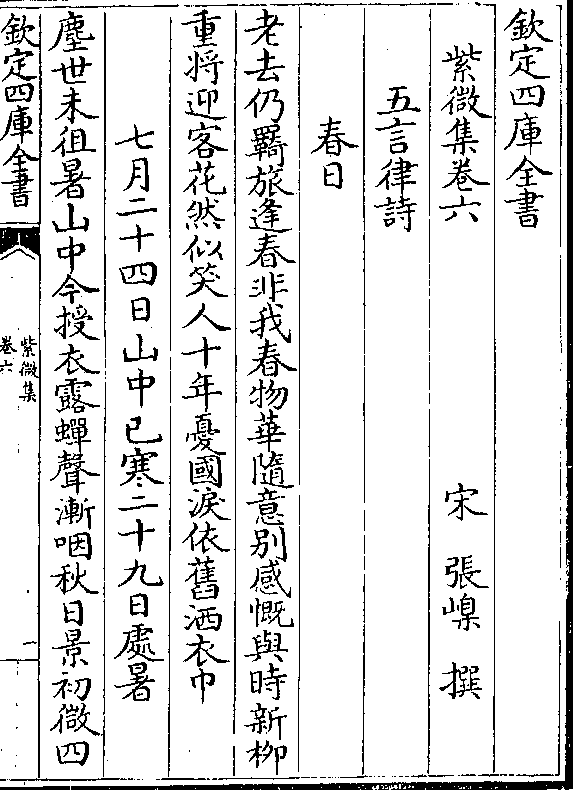 欽定四庫全書
紫微集卷六
宋 張嵲 撰
五言律詩
春日
老去仍羇旅逢春非我春物華隨意别感慨與時新栁
重将迎客花然似笑人十年憂國淚依舊洒衣巾
七月二十四日山中已寒二十九日處暑
塵世未徂暑山中今授衣露蟬聲漸咽秋日景初微四
欽定四庫全書
紫微集
卷六
一